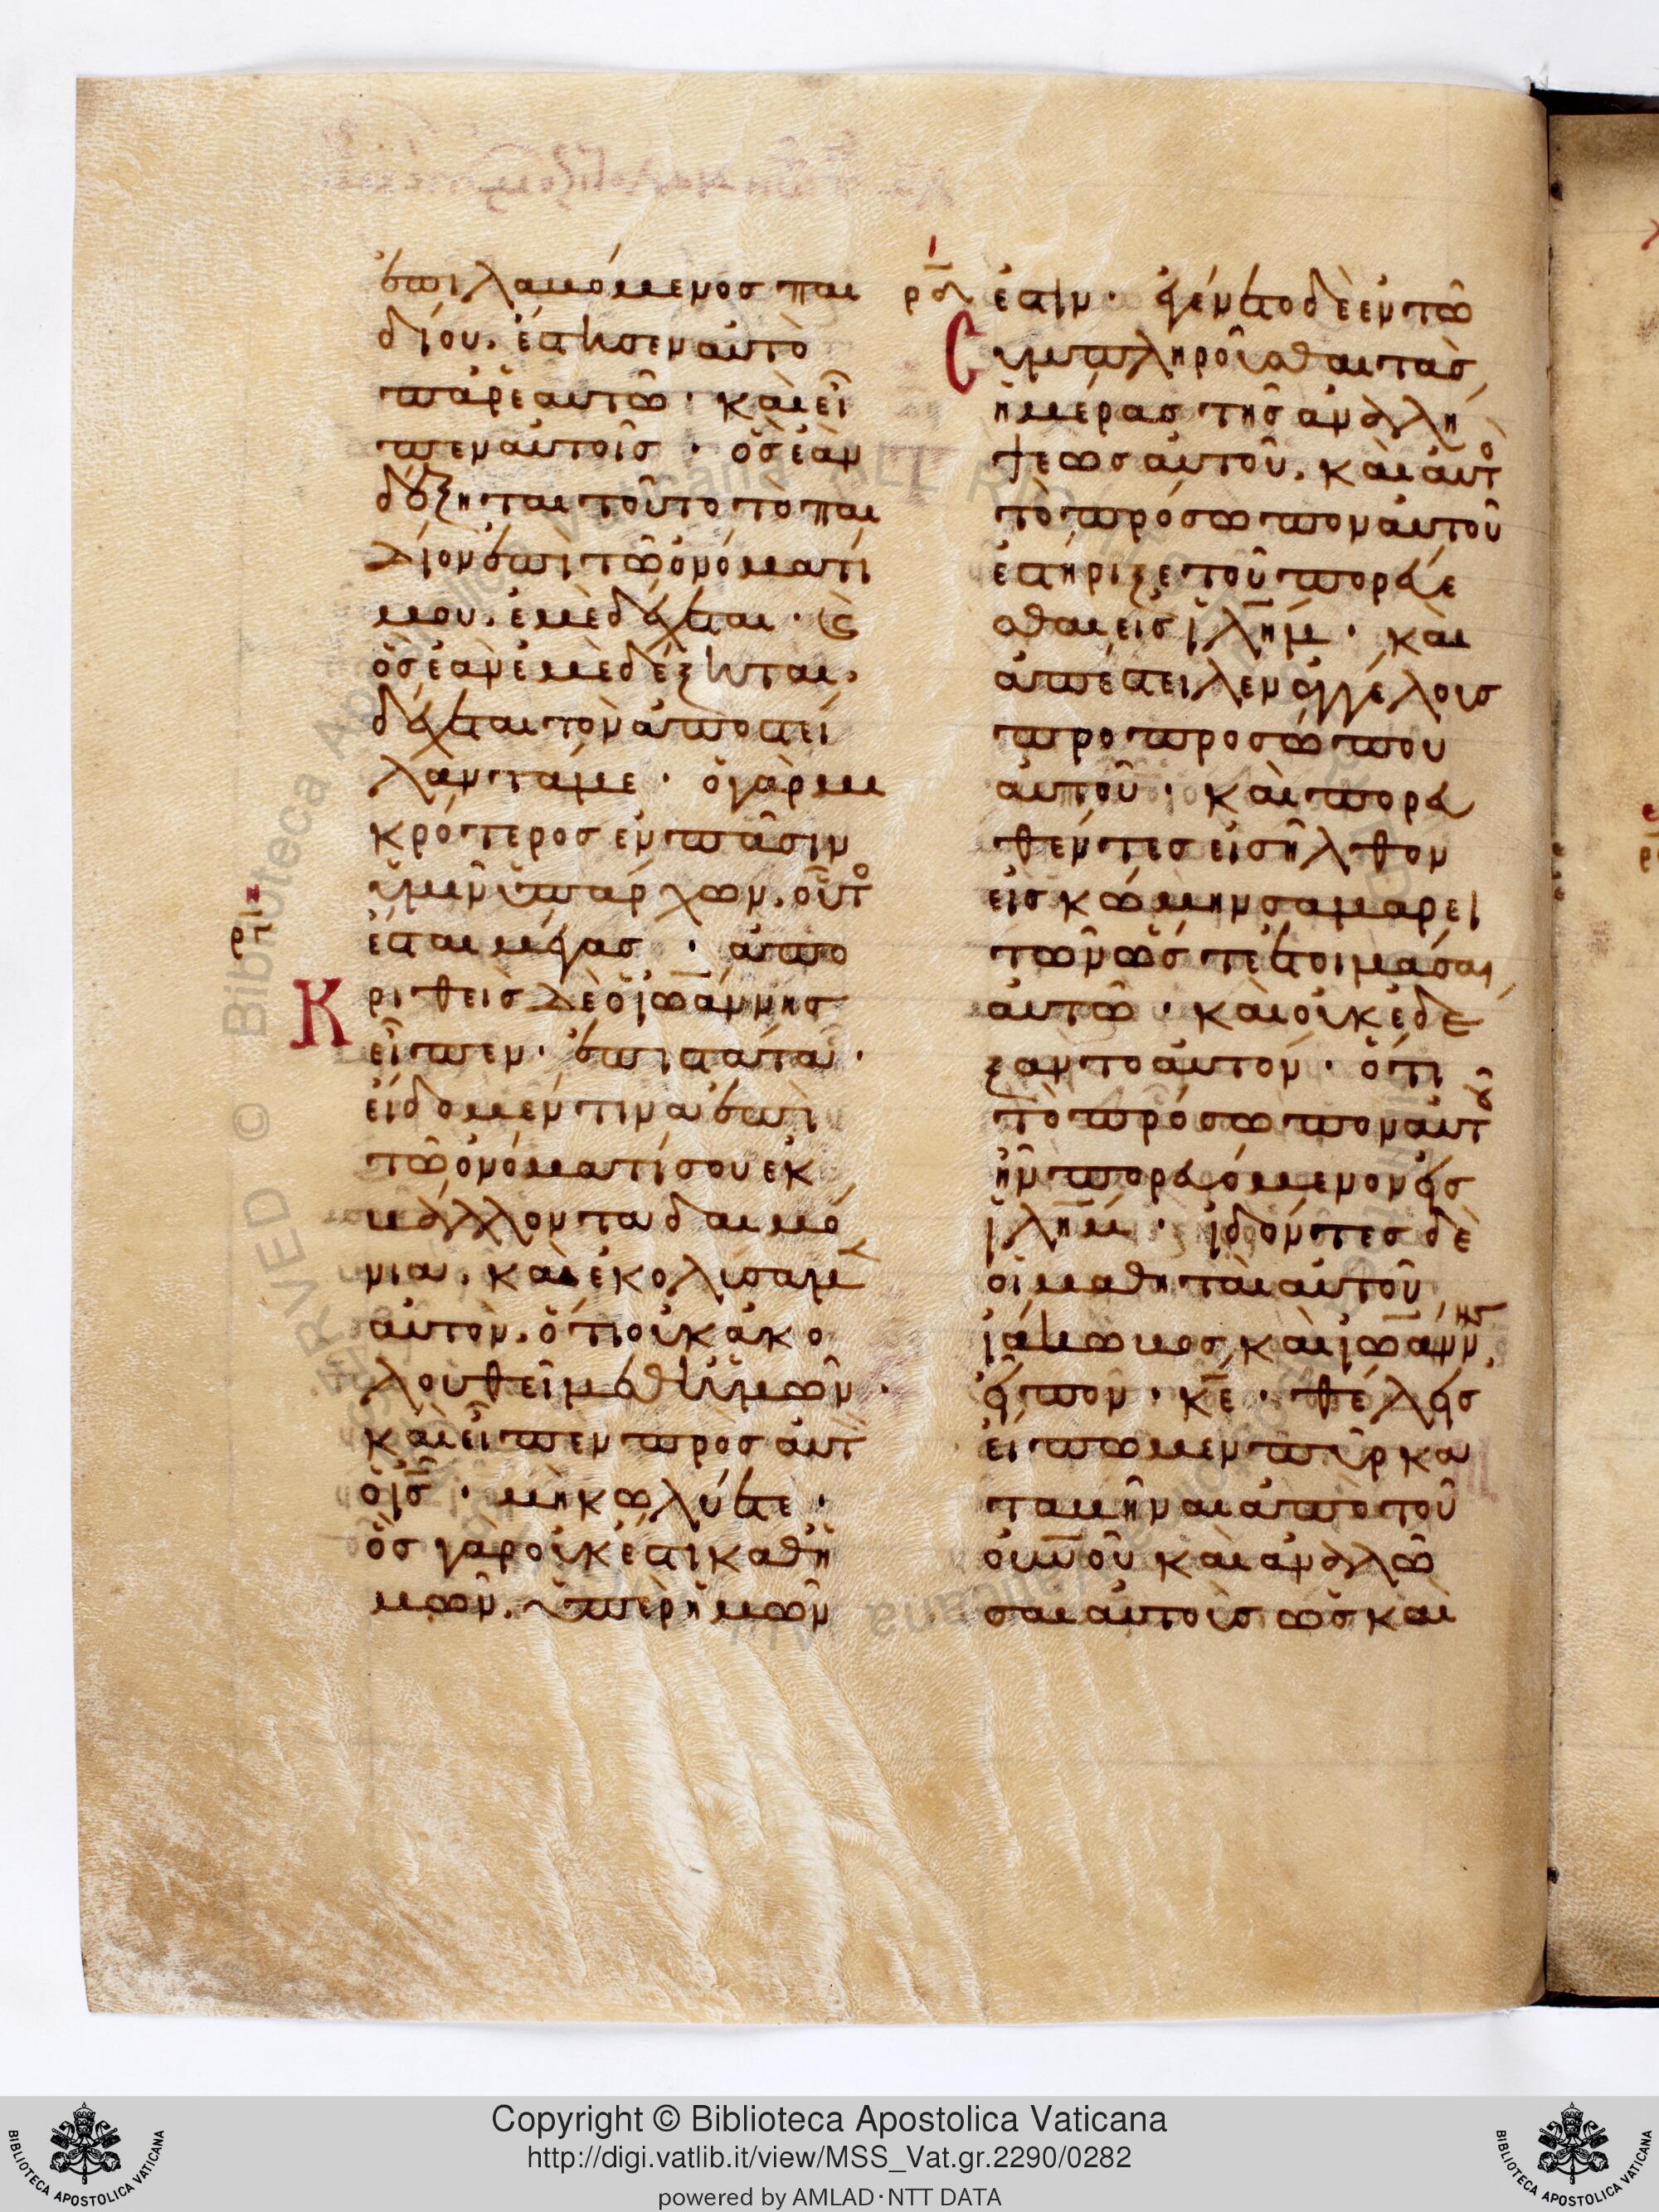 ἐπιλαβόμενος παι
δίου. ἔστησεν αὐτὸ
παρ' ἑαυτῶ· καὶ εἶ
πεν αὐτοῖς· ὃς ἐὰν
δέξηται τοῦτο τὸ παι
δίον ἐπὶ τῶ ὀνόματί
μου. ἐμὲ δέχεται· καὶ
ὃς ἐὰν ἐμὲ δέξηται.
δέχεται τὸν ἀποστεί
λαντά με· ὁ γὰρ μι
κρότερος ἐν πᾶσιν
ὑμῖν ὑπάρχων. οὗτο
ἔσται μέγας· ἀπο
Κριθεὶς δὲ ὁ ἰωάννης
εἶπεν· ἐπιστάτα·
εἴδομέν τινα ἐπὶ
τῶ ὀνόματί σου ἐκ
βάλλοντα δαιμό
νια. καὶ ἐκολύσαμεν
αὐτὸν. ὅτι οὐκ ἀκο
λουθεῖ μεθ' ἡμῶν·
καὶ εἶπεν πρὸς αὐτ
οὺς ὁ ις· μὴ κωλύετε·
ὃς γὰρ οὐκ ἔστι καθ' ἡ
μῶν. ὑπὲρ ἡμῶν
ἐστιν· ἐγένετο δὲ ἐν τῶ
Συμπληροῦσθαι τὰς
ἡμέρας τῆς ἀναλή
ψεως αὐτοῦ. καὶ αὐτο
τὸ πρόσωπον αὐτοῦ
ἐστήριξε τοῦ πορεύε
σθαι εἰς ἰλήμ· καὶ
ἀπέστειλεν ἀγγέλους
πρὸ προσώπου
αὐτοῦ· καὶ πορευ
θέντες εἰσῆλθον
εἰς κώμην σαμαρει
τῶν ὥστε ἑτοιμάσαι
αὐτῶ· καὶ οὐκ ἐδέ
ξαντο αὐτόν· ὅτι
τὸ πρόσωπον αὐτοῦ
ἦν πορευόμενον εἰς
ἰλήμ· ἰδόντες δὲ
οἱ μαθηταὶ αὐτοῦ
ἰάκωβος καὶ ἰωάννης
εἶπον· κε· θέλεις
εἴπωμεν πῦρ κα
ταβῆναι ἀπὸ τοῦ
οὐνοῦ καὶ ἀναλῶ
σαι αὐτοὺς ὡς καὶ
Copyright © Biblioteca Apostolica Vaticana
http://digi.vatlib.it/view/MSS_Vat.gr.2290/0282
powered by AMLAD·NTT DATA
BIBLIOTECA APOSTOLICA VATICANA
BIBLIOTECA APOSTOLICA VATICANA